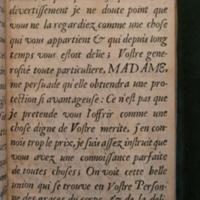 divertissement je ne doute point que
vous ne la regardiez comme une chose
qui vous appartient & qui depuis long
temps vous estoit deüe ; Vostre gene-
rosité toute particuliere, MADAME,
me persuade qu'elle obtiendra une pro-
tection si avantageuse : Ce n'est pas que
je pretende vous l'offrir comme une
chose digne de Vostre merite, j'en con-
nois trop le prix, je suis assez instruit que
vous avez une connoissance parfaite
de toutes choses ; On voit cette belle
union qui se trouve en Vostre Person-
ne des graces du corps